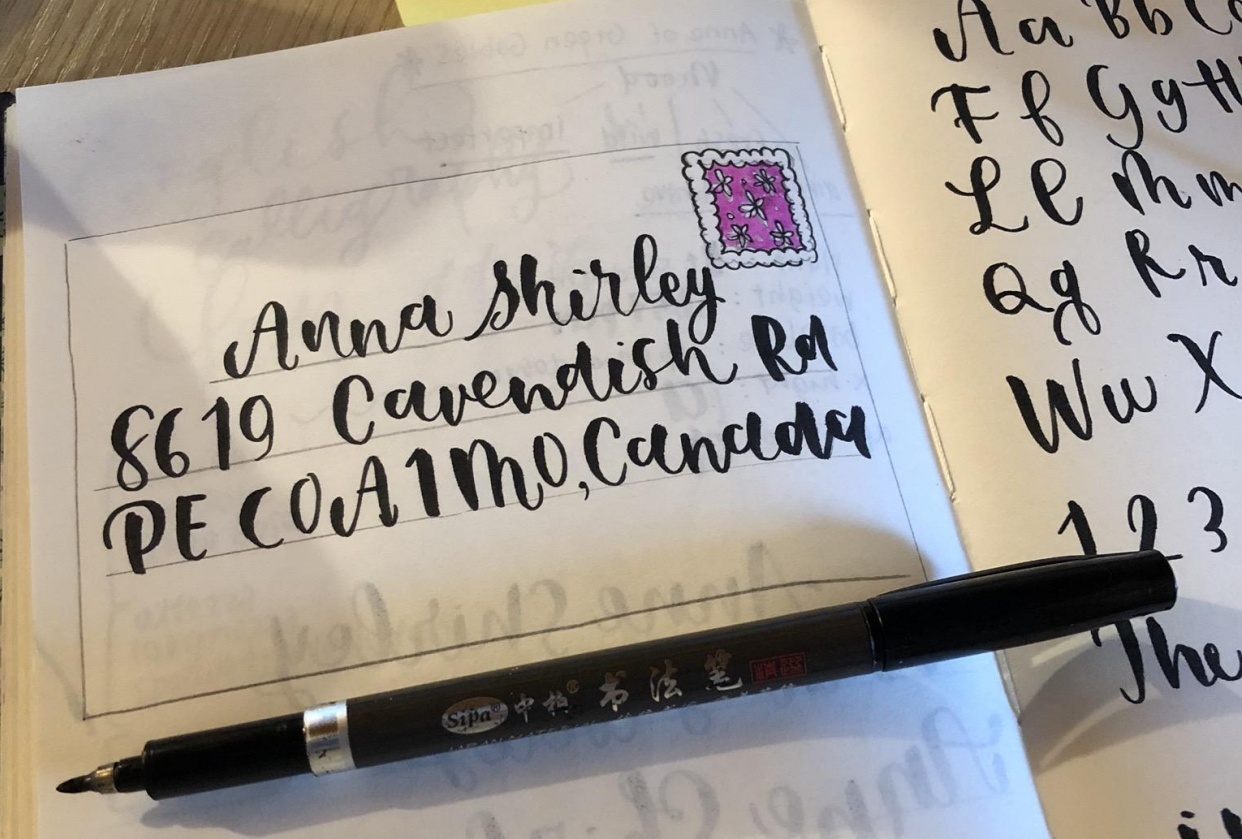 Anna Shirley
8619 Cavendish Rd
PE C0A1M0, Canada
Sipa® 中柏® 书法笔
Aa Bb Cc
Ff Gg H
Ll Mm
Qq Rr
Ww X
1 2 3
The